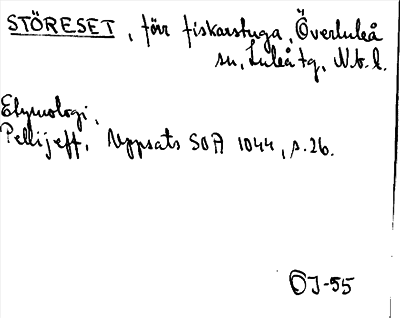 STÖRESET, förr fiskarstuga, Överluleå
sn, Luleå tg, Nb. l.
Etymologi,
Pellijeff, Uppsats SOA 1044, s. 26.
OJ-55